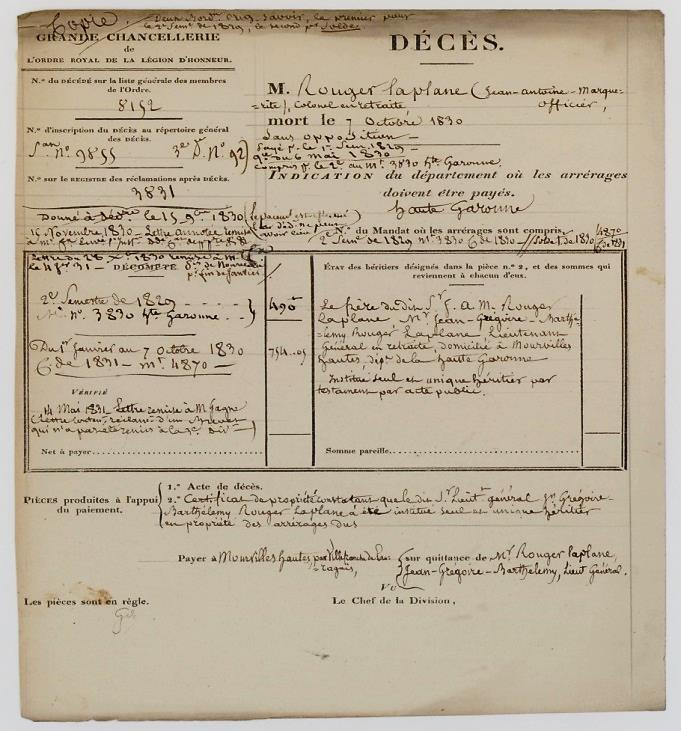 Copie
Deux Bord. Orig. savoir, le premier pour
le 2e Sem. de 1829, le second pr Solde.
GRANDE CHANCELLERIE
de
L'ORDRE ROYAL DE LA LÉGION D'HONNEUR.
N.º du DÉCÉDÉ sur la liste générale des membres
de l'Ordre.
8152
N.º d'inscription du DÉCÈS au répertoire général
des DÉCÈS.
San No 9855 3e D. No 92
N.º sur le REGISTRE des réclamations après DÉCÈS.
3831
DÉCÈS.
M. Rouger laplane (Jean-antoine-Marque-
=rite), Colonel en retraite officier,
mort le 7 Octobre 1830
Sans opposition
Payé pr le 1er Sem. 1829
6 mai 1830
compris pr le 2e au mt. 3830 hte Garonne.
INDICATION du département où les arrérages
doivent être payés.
haute Garonne
N.º du Mandat où les arrérages sont compris,
2e Sem. de 1829 mt. 3830 C de 1830 // Solde de 1830 4870
C de 1831
Donné à le 15 9bre 1830
15 Novembre 1830 - Lettre annotée remise
Lettre du 28 Xbre 1830 remise à M.
le 4 1831
DÉCOMPTE
2e Semestre de 1829
Mt. no. 3830 hte Garonne
490
Du 1er Janvier au 7 Octobre 1830
C de 1831 - mt. 4870
754.05
Vérifié
14 Mai 1831 Lettre remise à M. Gagne
Net à payer
ÉTAT des héritiers désignés dans la pièce n.º 2, et des sommes qui
reviennent à chacun d'eux.
Le frère du dit Sr J. A. M. Rouger
laplane Mr Jean-Grégoire-Barthé-
=lemy Rouger Laplane Lieutenant
Général en retraite, domicilié à Mourvilles
hautes, dépt. de la haute Garonne
Institué seul et unique héritier par
testament par acte public.
Somme pareille
PIÈCES produites à l'appui
du paiement.
1.º Acte de décès.
2.º Certificat de propriété constatant que le dit Sr. Lieut. général Jn. Grégoire-
Barthélemy Rouger Laplane a été institué seul et unique héritier
en propriété des arrérages dus
Payer à Mourvilles hautes, par Villefranche de Lau-
=ragais,
sur quittance de Mr Rouger laplane,
Jean-Grégoire-Barthelemy, Lieut Général.
Vu
Les pièces sont en règle.
Le Chef de la Division,